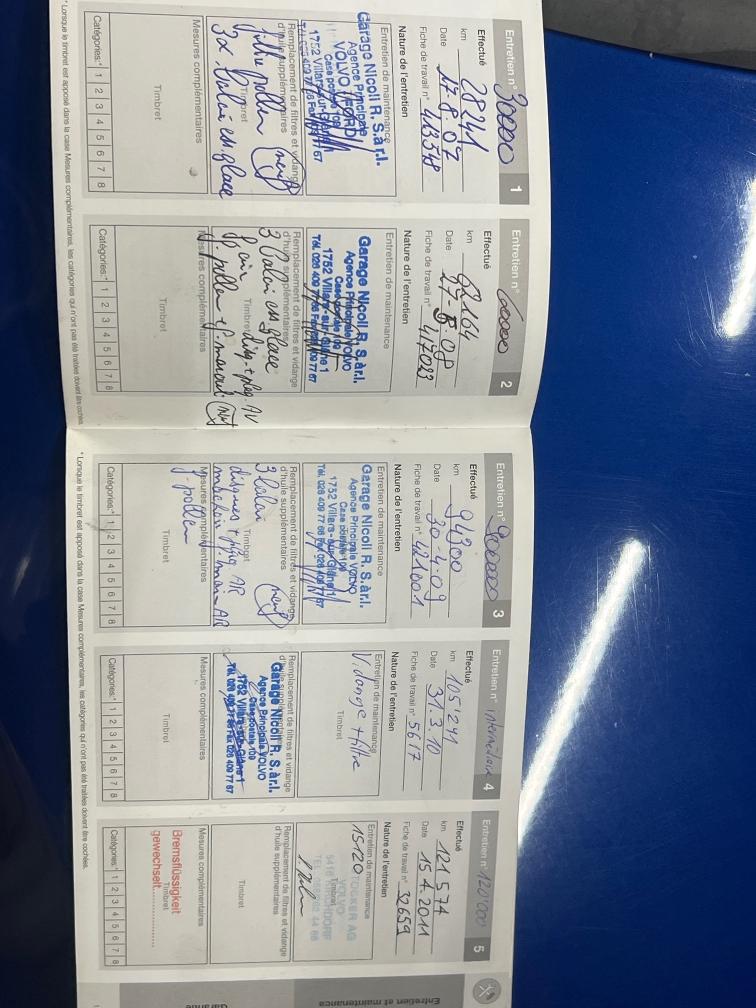 Entretien n° 30000 1
Effectué
km 28241
Date 17.8.07
Fiche de travail n° 413578
Nature de l'entretien
Entretien de maintenance
Garage Nicoli R. S.à.r.l.
Agence Principale
VOLVO
Case postale 109
1752 Villars-sur-Glâne 1
Remplacement de filtres et vidange
d'huile supplémentaires
filtre pollen (neuf)
Timbret
3x balai ess glace
Mesures complémentaires
Timbret
Catégories:* 1 2 3 4 5 6 7 8
* Lorsque le timbret est apposé dans la case Mesures complémentaires, les catégories qui n'ont pas été traitées doivent être cochées.
Entretien n° 60000 2
Effectué
km 62164
Date 27.8.08
Fiche de travail n° 417023
Nature de l'entretien
Entretien de maintenance
Garage Nicoli R. S.à.r.l.
Agence Principale VOLVO
Case postale 109
1752 Villars-sur-Glâne 1
Tél. 026 409 77 66 Fax 026 409 77 67
Remplacement de filtres et vidange
d'huile supplémentaires
3 balai ess glace
f. air Timbret disq. + plaq. AV
Mesures complémentaires
f. pollen
Timbret
Catégories:* 1 2 3 4 5 6 7 8
Entretien n° 90000 3
Effectué
km 94300
Date 30-4.09
Fiche de travail n° 421001
Nature de l'entretien
Entretien de maintenance
Garage Nicoli R. S.à.r.l.
Agence Principale VOLVO
Case postale 109
1752 Villars-sur-Glâne 1
Tél. 026 409 77 66 Fax 026 409 77 67
Remplacement de filtres et vidange
d'huile supplémentaires
3 balai (neuf)
Timbret
disques + plaq. AR
Mesures complémentaires
f. pollen
Timbret
Catégories:* 1 2 3 4 5 6 7 8
* Lorsque le timbret est apposé dans la case Mesures complémentaires, les catégories qui n'ont pas été traitées doivent être cochées.
Entretien n° 4
Effectué
km 105'241
Date 31.3.10
Fiche de travail n° 5617
Nature de l'entretien
Entretien de maintenance
Vidange + filtre
Timbret
Remplacement de filtres et vidange
d'huile supplémentaires
Garage Nicoli R. S.à.r.l.
Agence Principale VOLVO
Case postale 109
1752 Villars-sur-Glâne 1
Tél. 026 409 77 66 Fax 026 409 77 67
Mesures complémentaires
Timbret
Catégories:* 1 2 3 4 5 6 7 8
Entretien n° 120'000 5
Effectué
km 121574
Date 15.4.2011
Fiche de travail n° 32659
Nature de l'entretien
Entretien de maintenance
TOCKER AG
VOLVO
Timbret
Remplacement de filtres et vidange
d'huile supplémentaires
Timbret
Mesures complémentaires
Bremsflüssigkeit
Timbret
gewechselt
Catégories:* 1 2 3 4 5 6 7 8
Entretien et maintenance